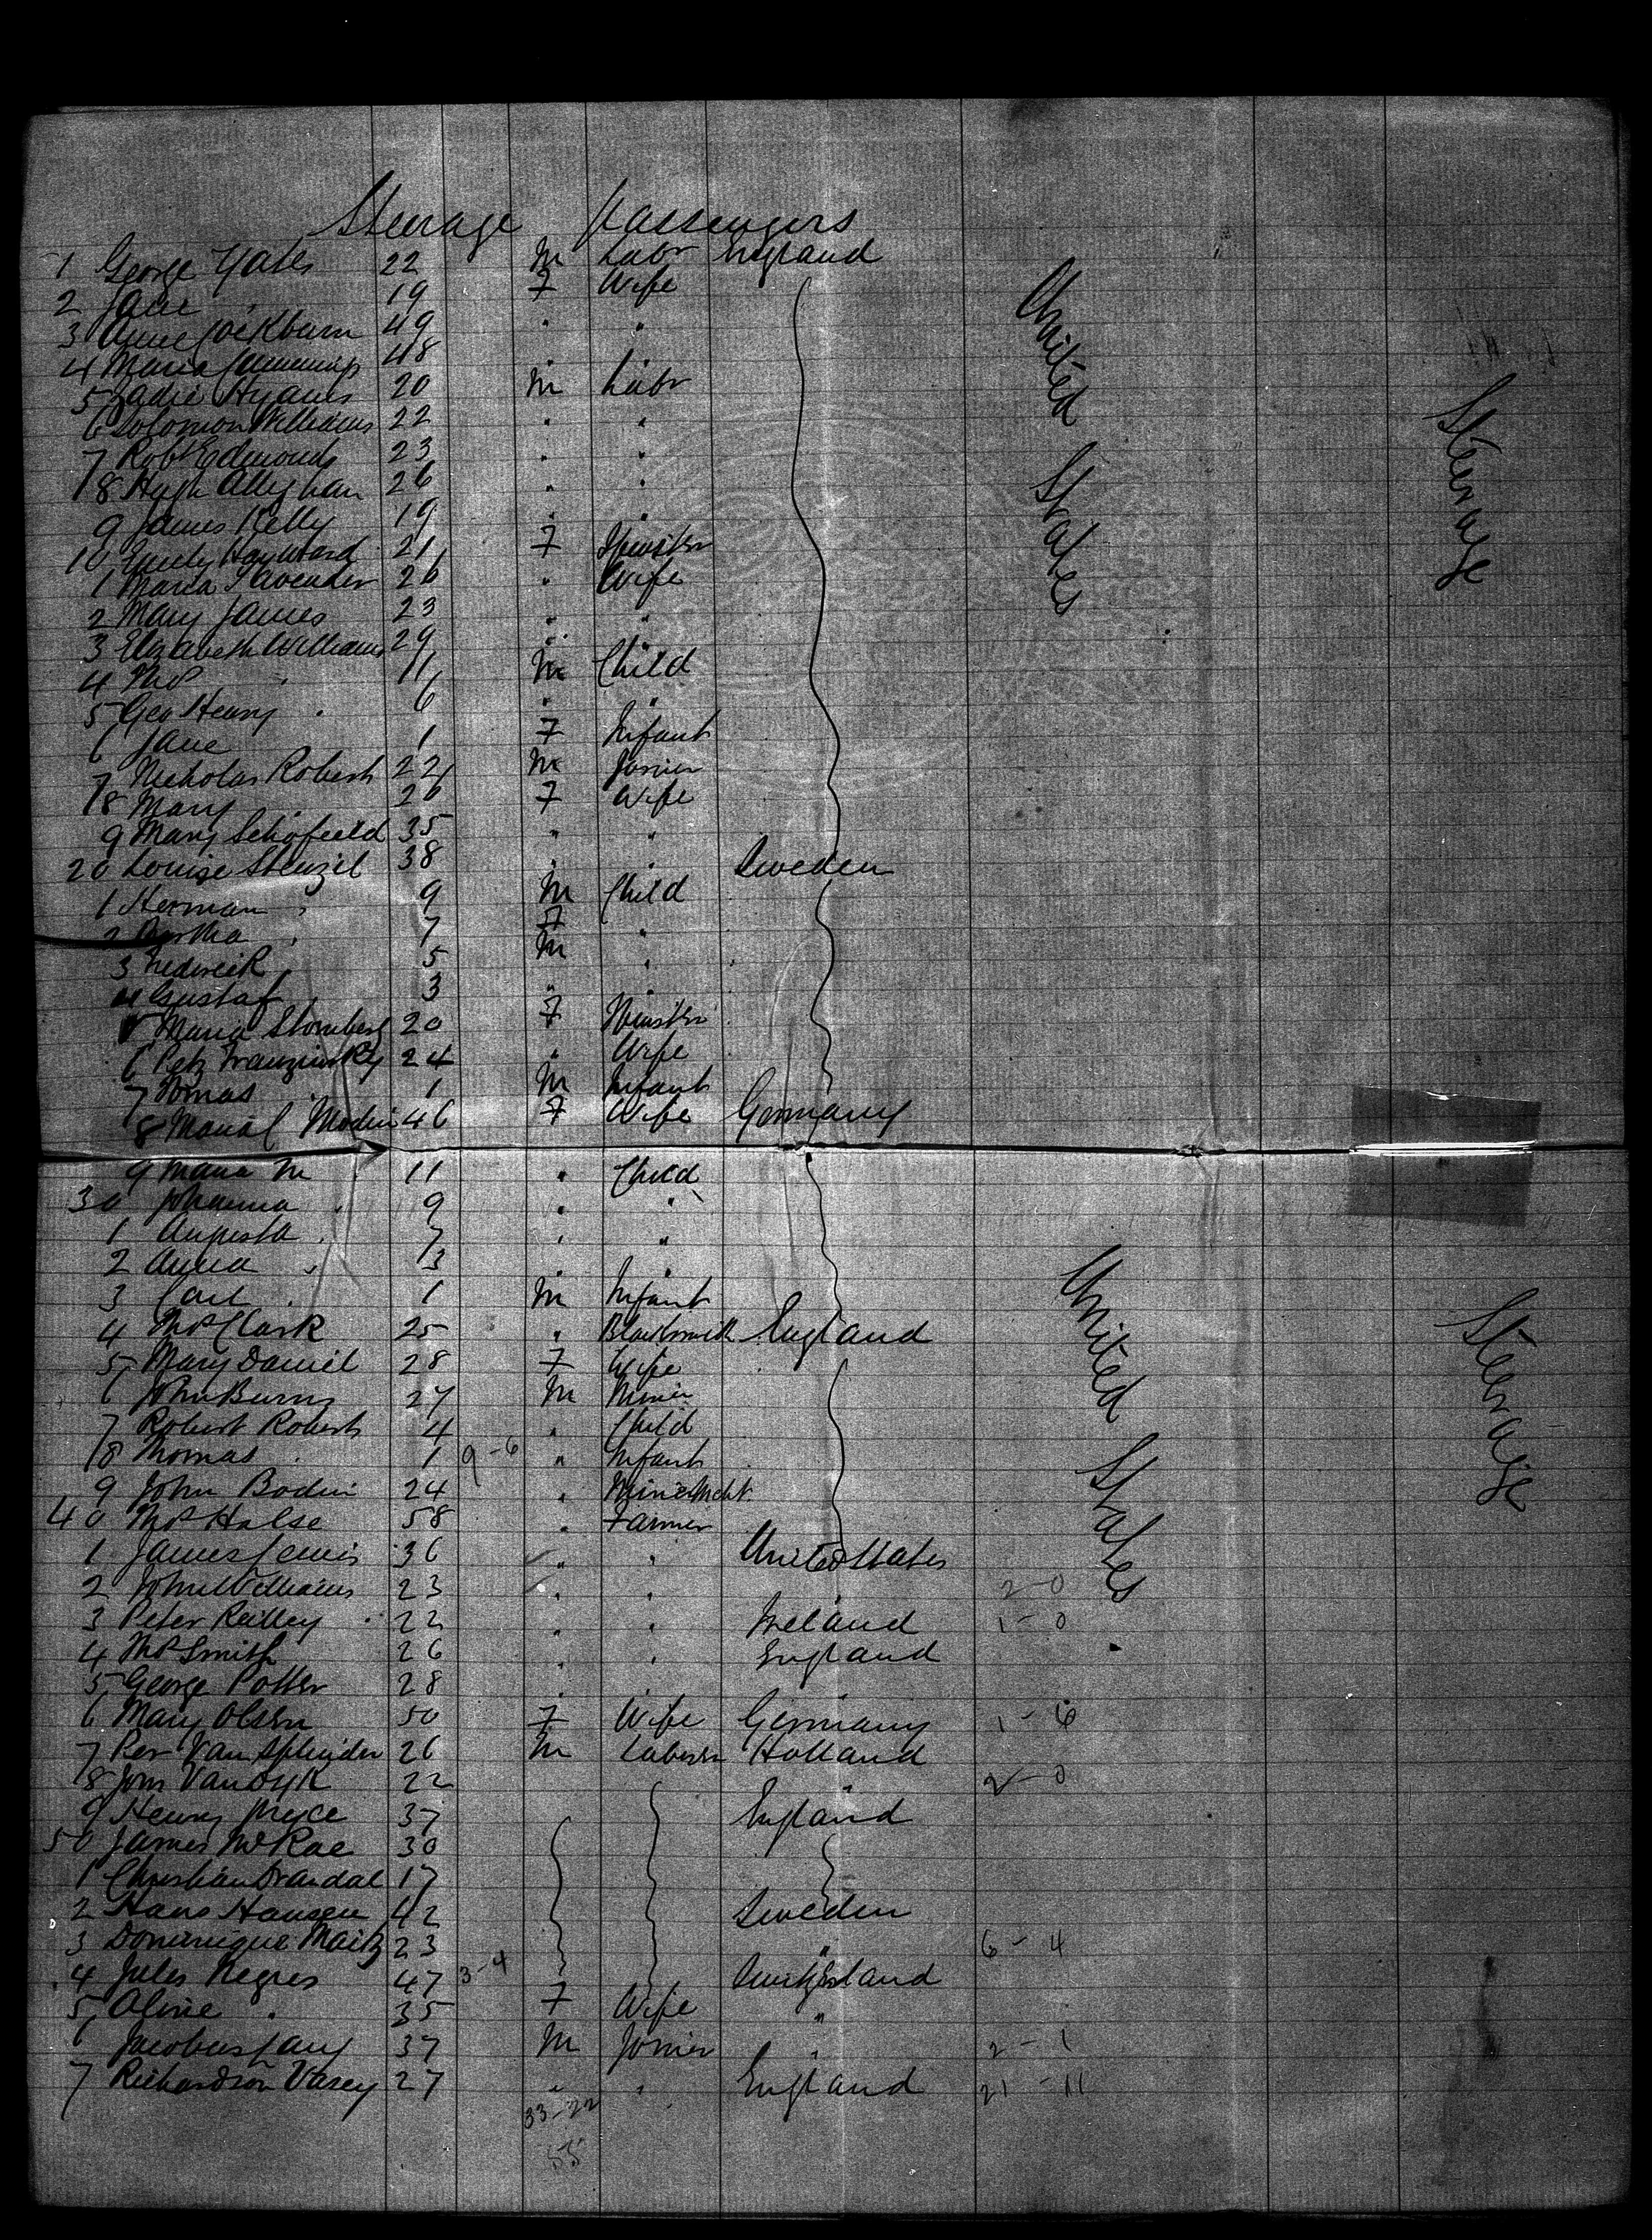 Steerage Passengers
1 George Yates 22 M Labr England
2 Jane " 19 F Wife
3 Anne Cockburn 49 " "
4 Maria Cummings 48 " "
5 Zadie Hyams 20 M Labr
6 Solomon Williams 22 " "
7 Robt Edmonds 23 " "
8 Hugh Alleghan 26 " "
9 James Kelly 19 " "
10 Emily Hayward 21 F Spinster
1 Maria Lavender 26 " Wife
2 Mary James 23 " "
3 Elizabeth Williams 29 " "
4 Thos " 11 M Child
5 Geo Henry " 6 " "
6 Jane 1 F Infant
7 Nicholas Roberts 22 M Joiner
8 Mary " 26 F Wife
9 Mary Schofield 35 " "
20 Louise Stenzil 38 " " Sweden
1 Herman " 9 M Child
2 Bertha " 7 F "
3 Frederick 5 M "
4 Gustaf " 3 " "
5 Maria Stomberg 20 F Spinster
6 24 " Wife
7 Tomas " 1 M Infant
8 Maria C Modin 46 F Wife Germany
9 Maria M " 11 " Child
30 Johanna " 9 " "
1 Augusta " 7 " "
2 Anna " 3 "
3 Carl " 1 M Infant
4 Thos Clark 25 " Blacksmith England
5 Mary Daniel 28 F Wife
6 John Burns 27 M Miner
7 Robert Roberts 4 " Child
8 Thomas " 1 9-6 " Infant
9 John Bodin 24 "
40 Thos Halse 58 " Farmer
1 James Lewis 36 " " United States
2 John Williams 23 " " 2-0
3 Peter Reilley 22 " " Ireland 1-0
4 Thos Smith 26 " " England
5 George Potter 28 " " "
6 Mary Olsen 50 F Wife Germany 1-6
7 Per Van Splinder 26 M Laborer Holland
8 Jom Vandyk 22 " 2-0
9 Henry Pryce 37 England
50 James McRae 30
1 Christian Drandal 17
2 Hans Hansen 42 Sweden
3 Dominique Maitz 23 " 6-4
4 Jules Negres 47 3-4 Switzerland
5 Aline " 35 F Wife "
6 Jacobus Lang 37 M Joiner " 2-1
7 Richardson Varey 27 " " England 21-11
33-22
55
United States
Steerage
United States
Steerage